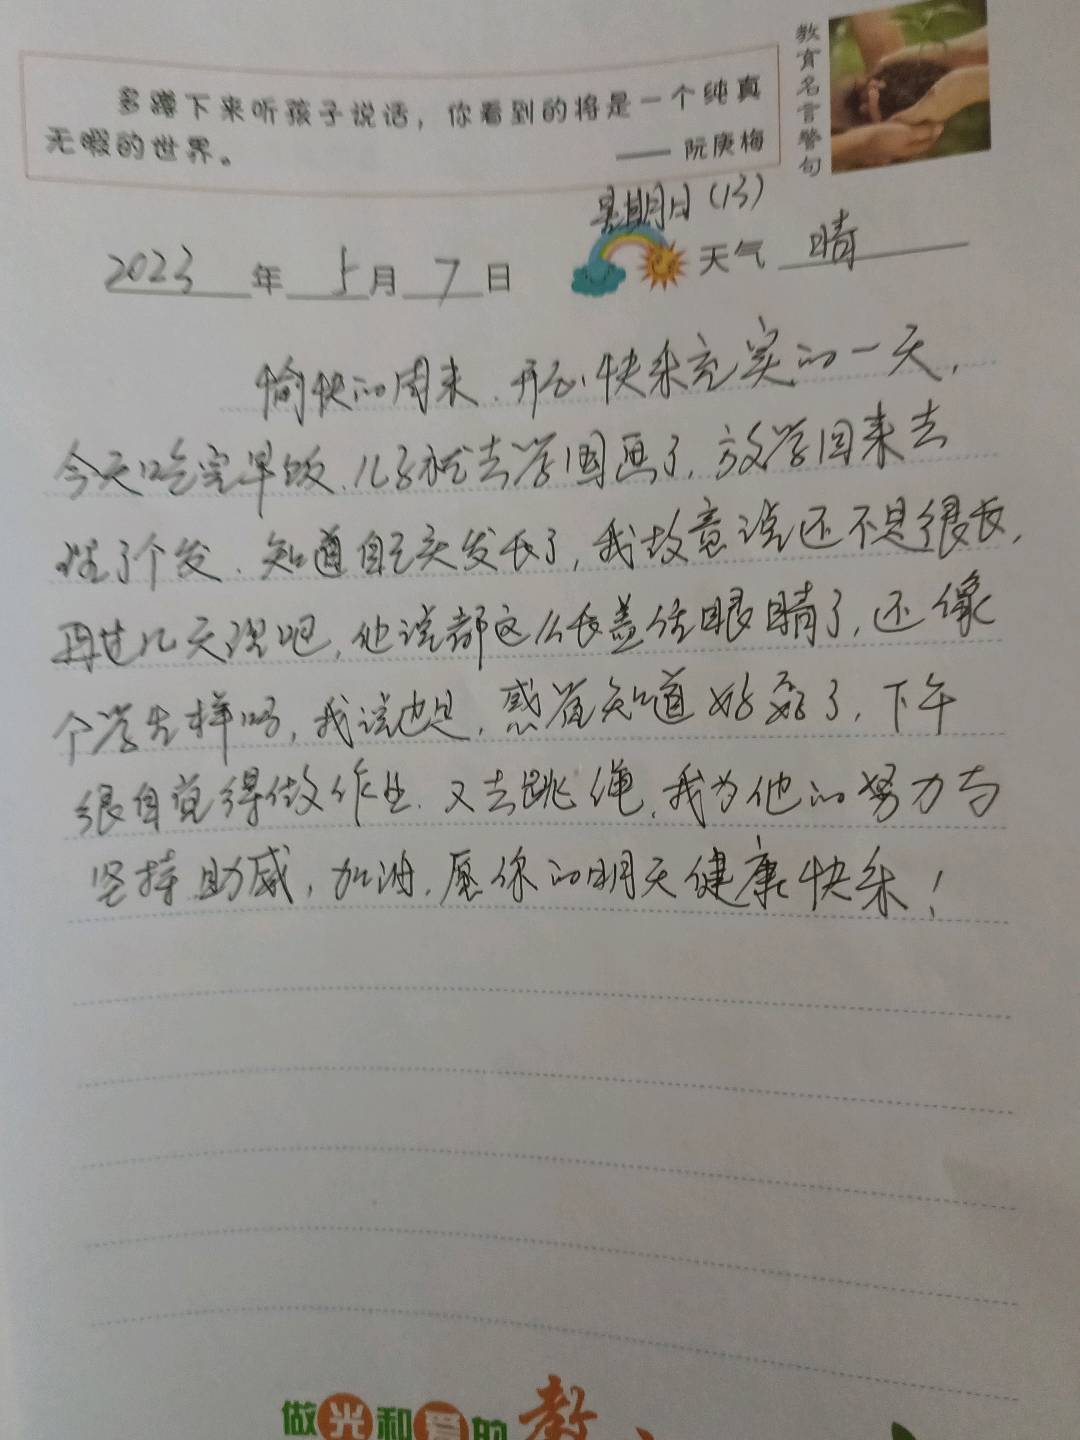 多蹲下来听孩子说话，你看到的将是一个纯真
无暇的世界。
—— 阮庚梅
教育名言警句
星期日(13)
2023年5月7日 天气 晴
愉快的周末、开心、快乐充实的一天，
今天吃完早饭、儿子就去学国画了，放学回来去
理了个发、知道自己头发长了，我故意说还不是很长，
再过几天理吧，他说都这么长盖住眼睛了，还像
个学生样吗，我说也是，感觉知道好多了，下午
很自觉得做作业、又去跳绳，我为他的努力与
坚持助威，加油，愿你的明天健康快乐！
做光和爱的教